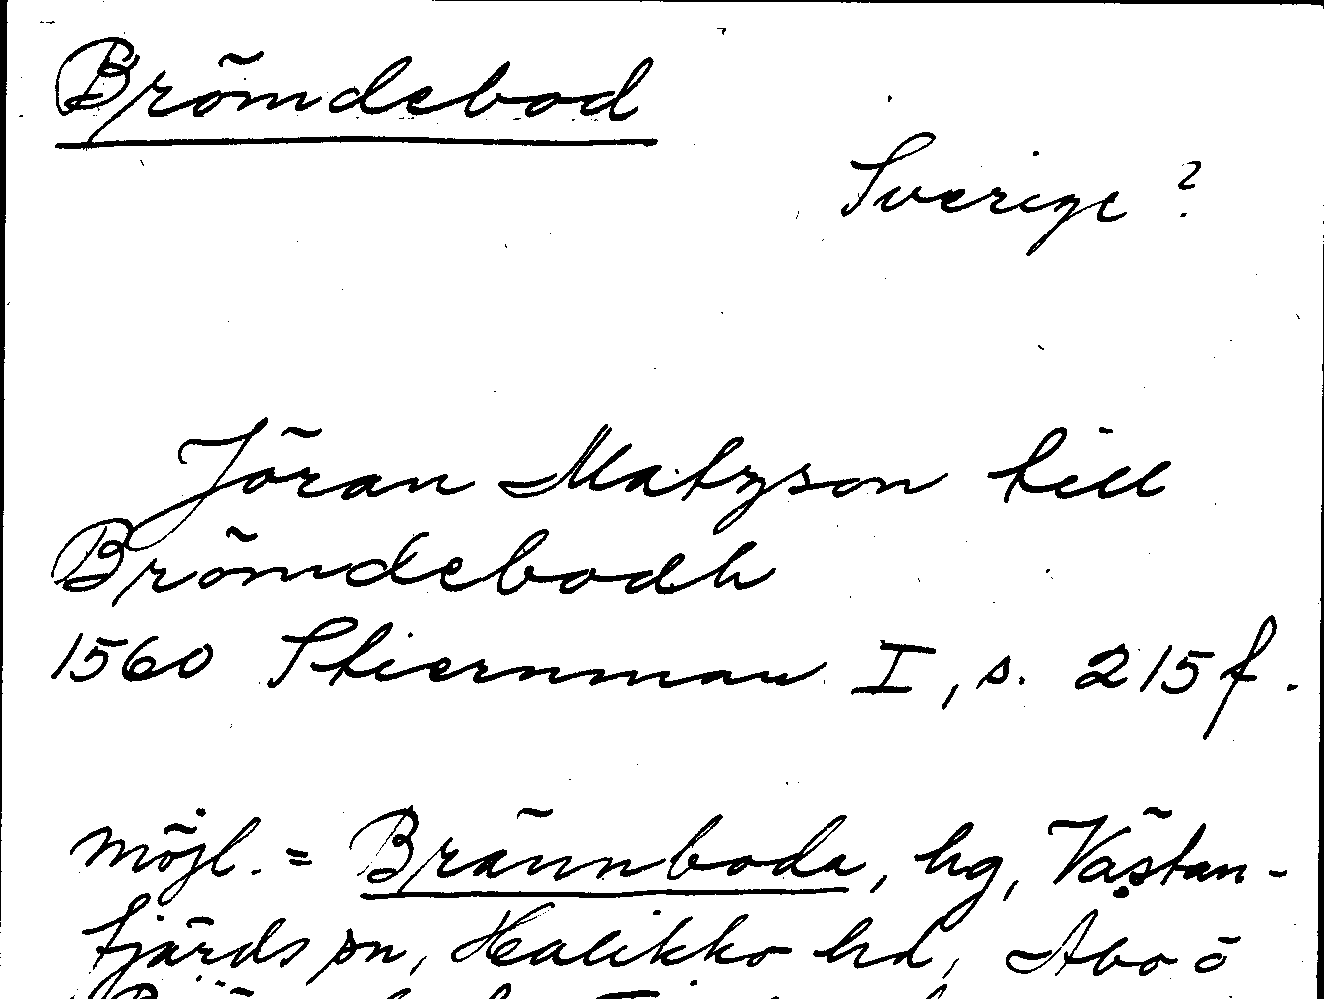 Brömdebod
Sverige ?
Jöran Matzson till
Brömdebodh
1560 Stiernman I, s. 215 f.
möjl. = Brännboda, hg, Västan-
fjärds sn, Halikko hd, Åbo ö